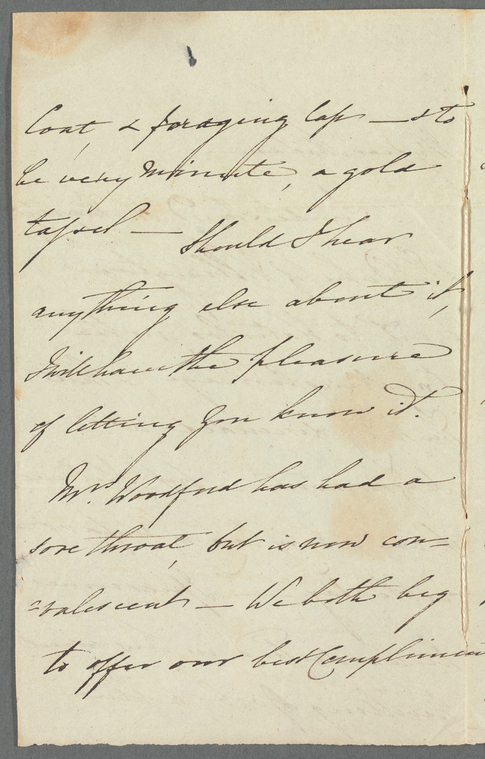 Coat, & foraging Cap — & to
be very minute, a gold
tassel — Should I hear
anything else about it,
I will have the pleasure
of letting you know it.
Mrs. Woodford has had a
sore throat, but is now con=
=valescent — We both beg
to offer our best Compliment